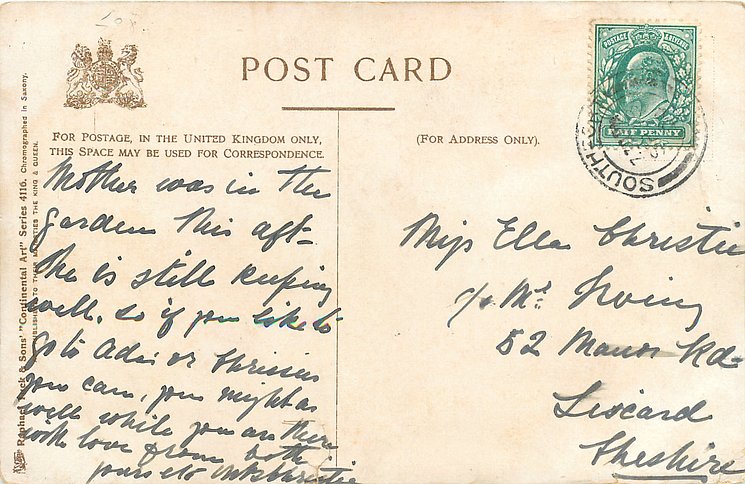 POST CARD
FOR POSTAGE, IN THE UNITED KINGDOM ONLY,
THIS SPACE MAY BE USED FOR CORRESPONDENCE.
(FOR ADDRESS ONLY).
POSTAGE & REVENUE
HALF PENNY
Raphael Tuck & Sons' "Continental Art" Series 4116. Chromographed in Saxony.
PUBLISHERS TO THEIR MAJESTIES THE KING & QUEEN.
Mother was in the
garden this aft-
She is still keeping
well. so if you like to
go to or
you can, you might as
well while you are there
with love from both
yours etc
Miss Ella Christie
c/o Mrs Irving
52 Manor Rd-
Liscard
Cheshire